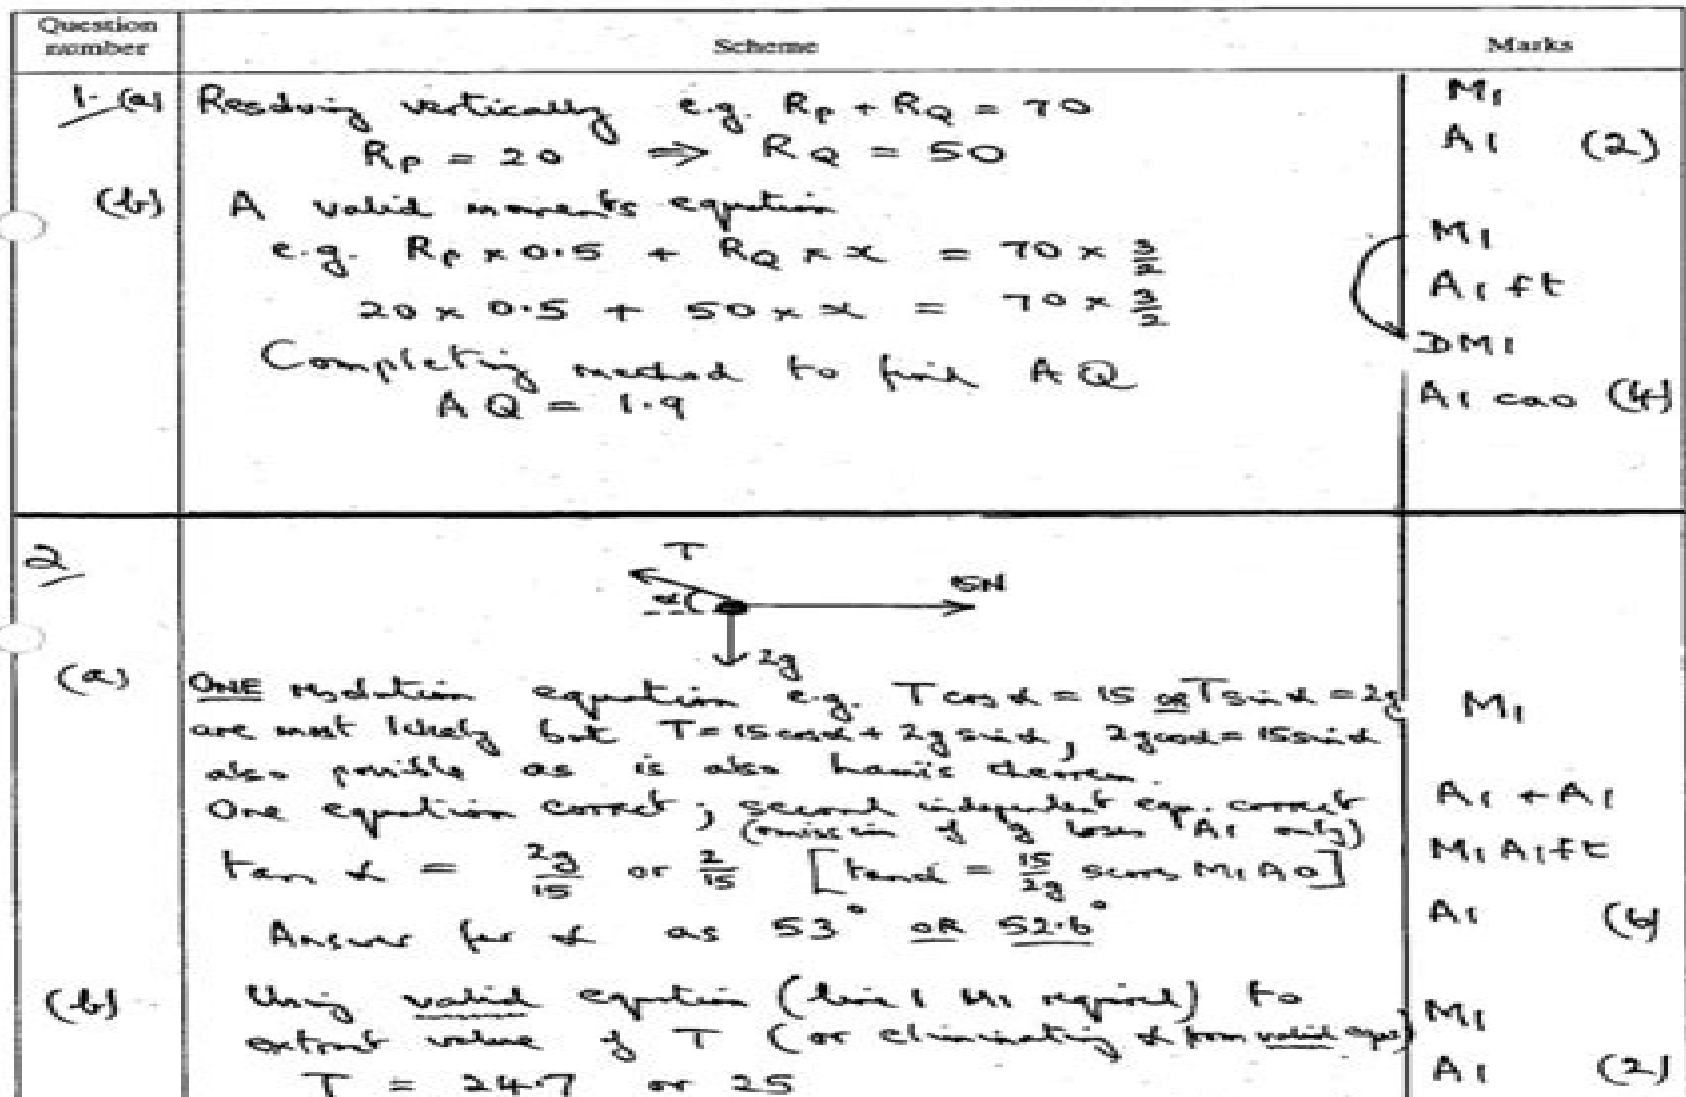 Question number Scheme Marks
1. (a) Resolving vertically e.g. R_P + R_Q = 70 M1
R_P = 20 ⇒ R_Q = 50 A1 (2)
(b) A valid moments equation
e.g. R_P × 0.5 + R_Q × x = 70 × 3/2 M1
20 × 0.5 + 50 × x = 70 × 3/2 A1 ft
Completing method to find AQ DM1
AQ = 1.9 A1 cao (4)
2
T
α
15N
2g
(a) ONE resolution equation e.g. T cos α = 15 or T sin α = 2g M1
are most likely but T = 15 cos α + 2g sin α, 2g cos α = 15 sin α
also possible as is also Lami's theorem.
One equation correct; second independent eqn. correct A1 + A1
(omission of g loses A1 only)
tan α = 2g/15 or 2/15 [tan α = 15/2g scores M1 A0] M1 A1 ft
Answer for α as 53° OR 52.6° A1 (6)
(b) Using valid equation (line 1 M1 required) to
extract value of T (or eliminating α from valid eqns) M1
T = 24.7 or 25 A1 (2)